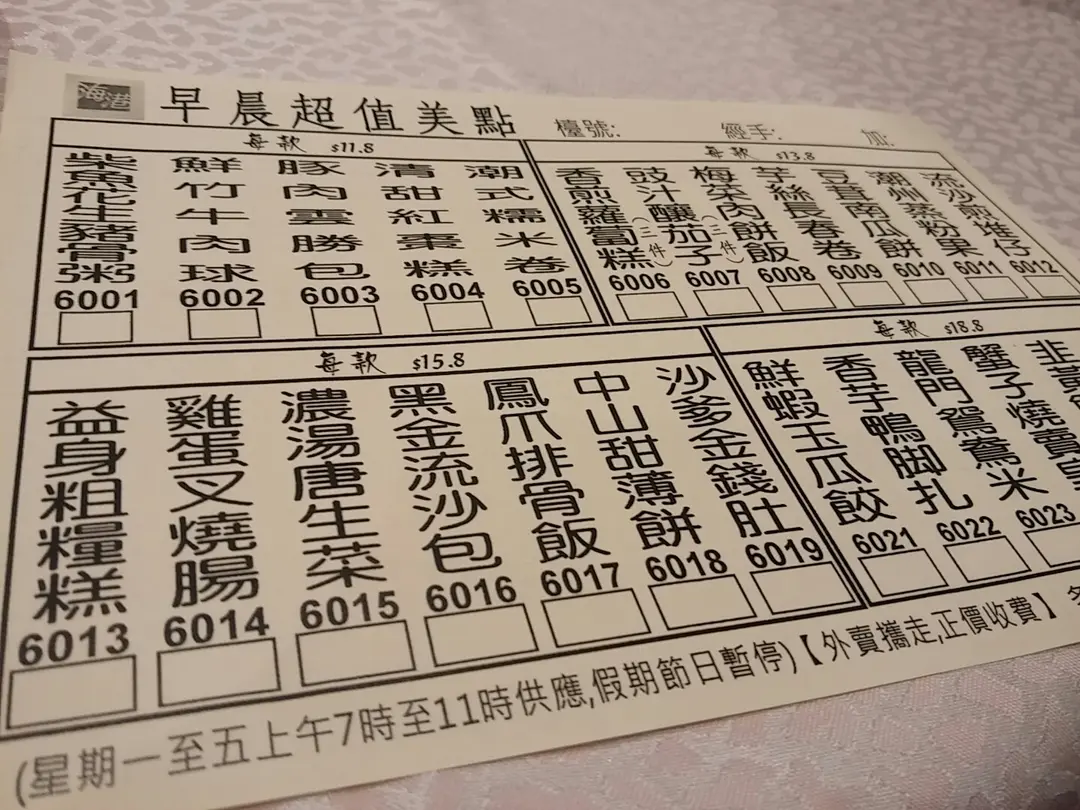 早晨超值美點 檯號: 經手: 加:
每款 $11.8
柴魚花生豬骨粥 6001
鮮竹牛肉球 6002
豚肉雲勝包 6003
清甜紅棗糕 6004
潮式糯米卷 6005
每款 $13.8
香煎蘿蔔糕(三件) 6006
豉汁釀茄子(三件) 6007
梅菜肉餅飯 6008
芋絲長春卷 6009
豆茸南瓜餅 6010
潮州蒸粉果 6011
流沙煎堆仔 6012
每款 $15.8
益身粗糧糕 6013
雞蛋叉燒腸 6014
濃湯唐生菜 6015
黑金流沙包 6016
鳳爪排骨飯 6017
中山甜薄餅 6018
沙爹金錢肚 6019
每款 $18.8
鮮蝦玉瓜餃 6021
香芋鴨脚扎 6022
龍門鴛鴦米 6023
蟹子燒賣
韭黃
(星期一至五上午7時至11時供應,假期節日暫停)【外賣攜走,正價收費】